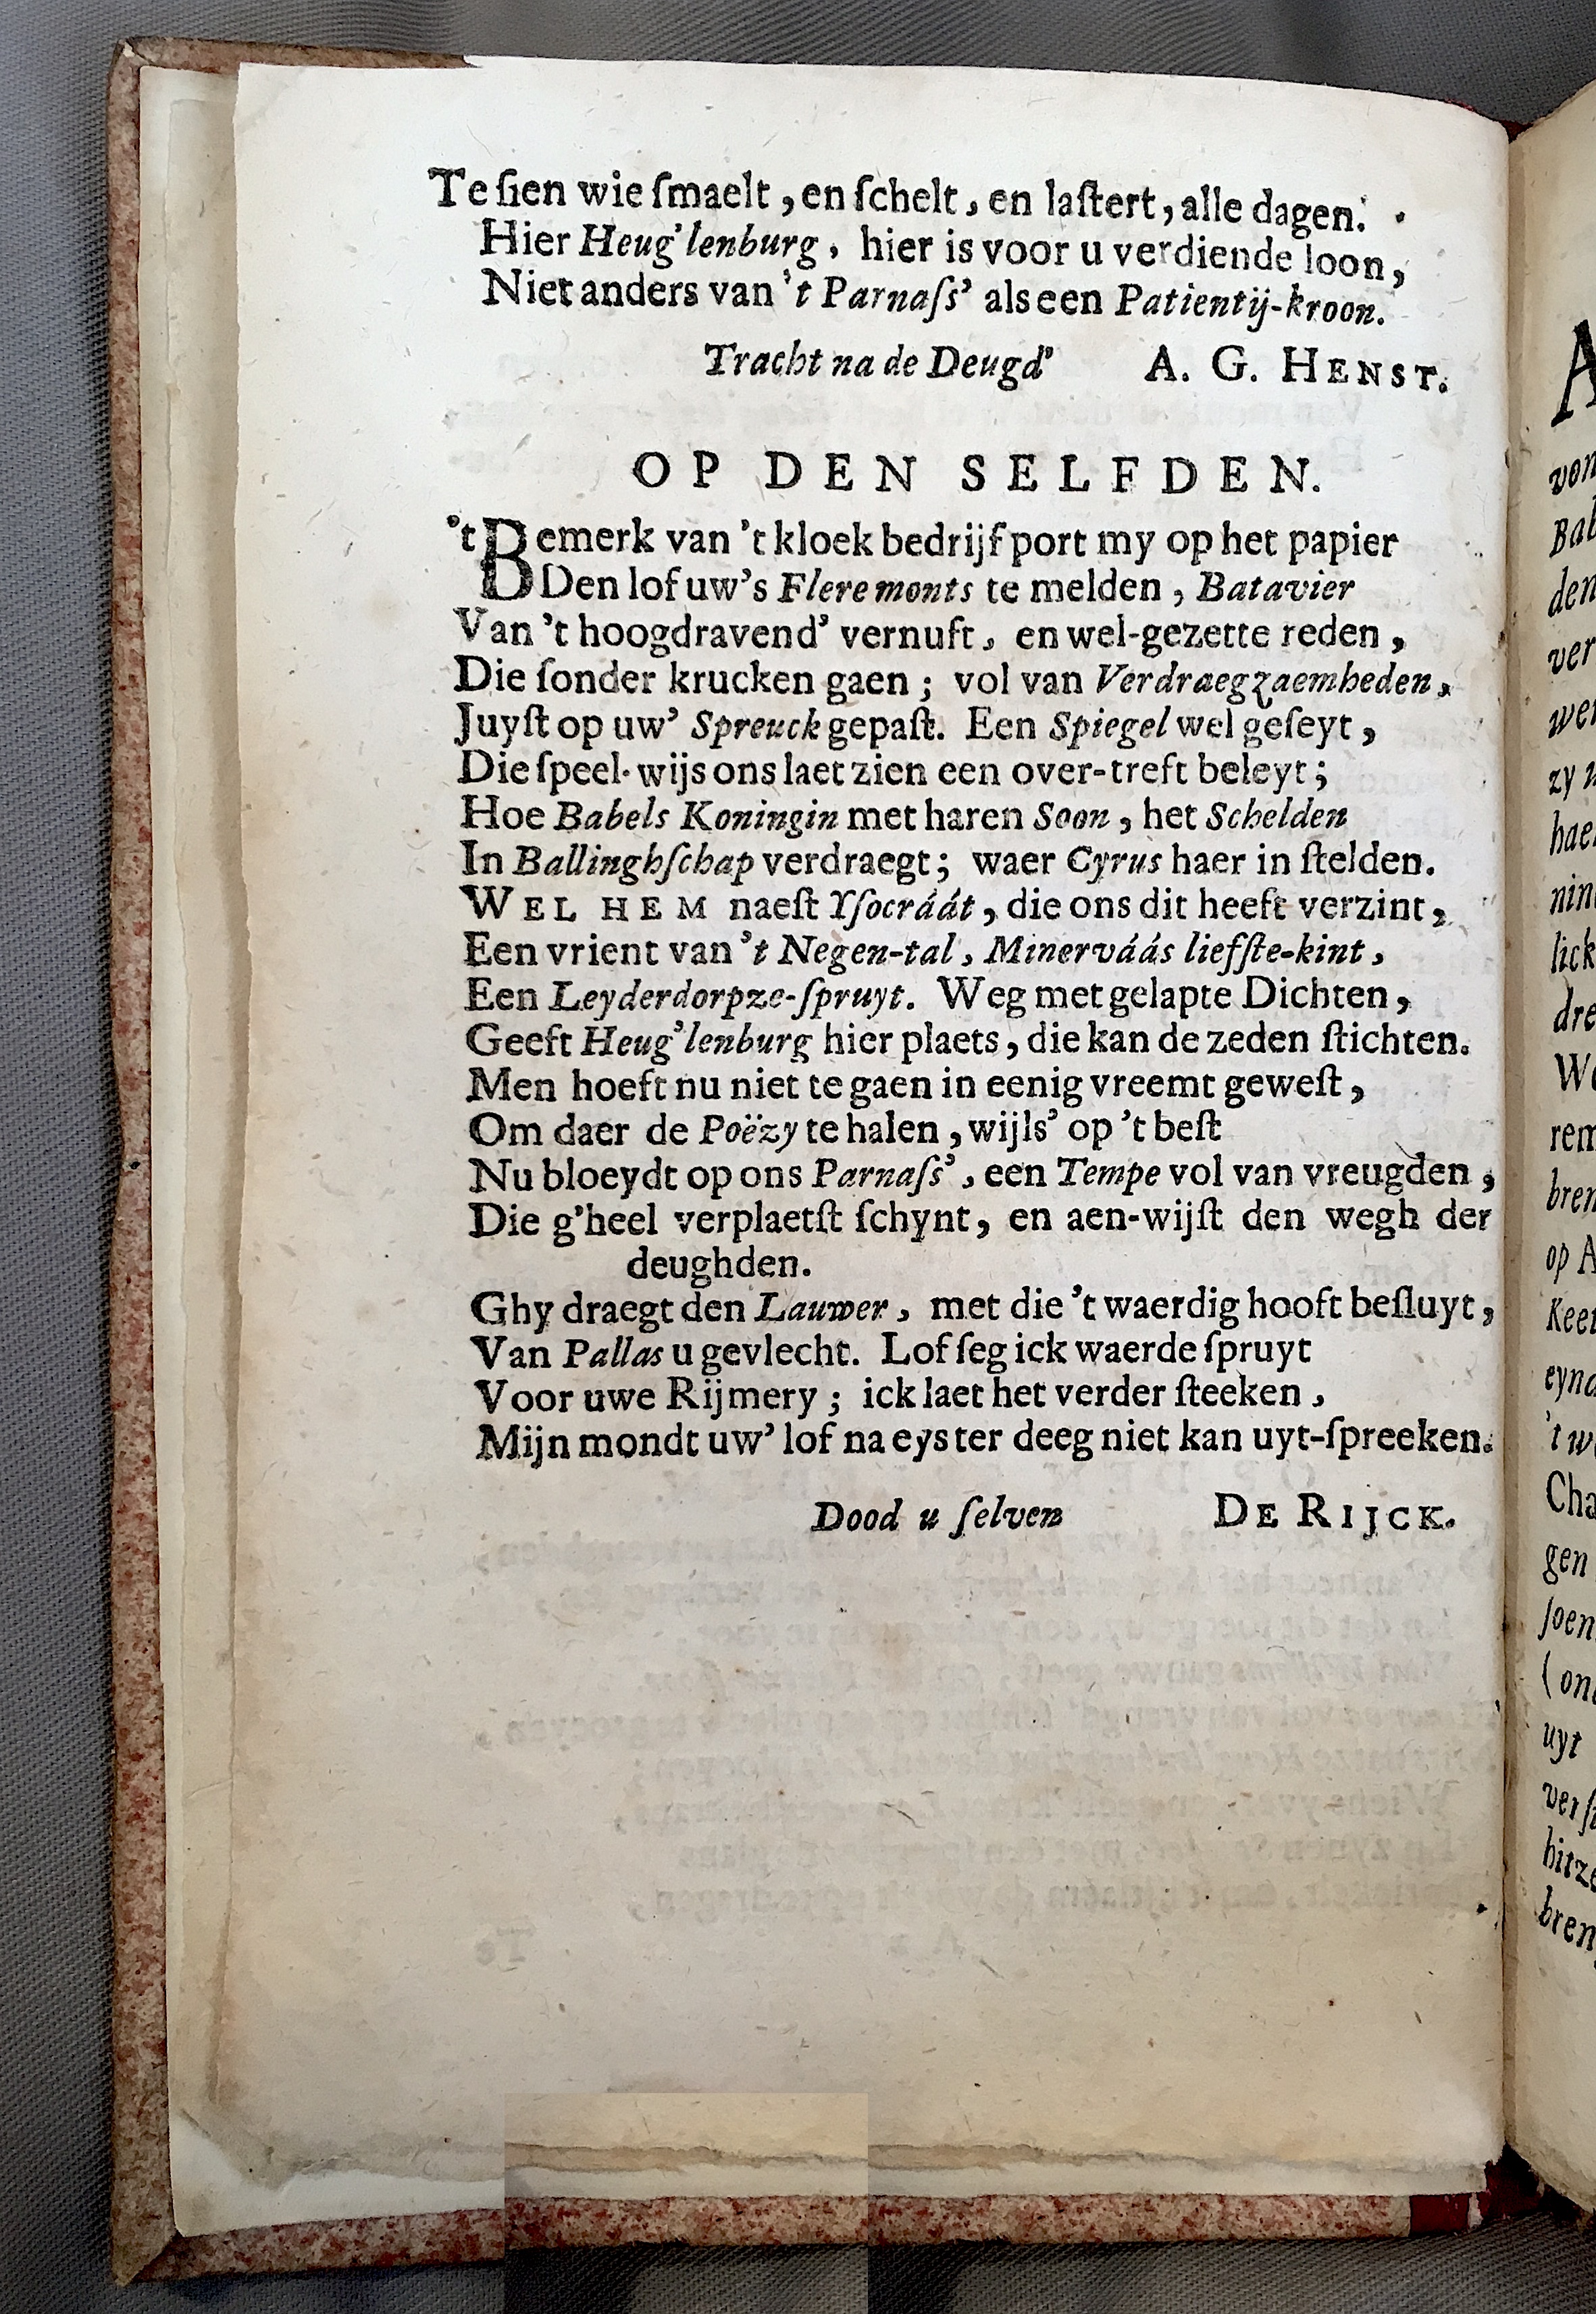 Te ſien wie ſmaelt, en ſchelt, en laſtert, alle dagen.
Hier Heug'lenburg, hier is voor u verdiende loon,
Niet anders van 't Parnaſs' als een Patientij-kroon.
Tracht na de Deugd' A. G. HENST.
OP DEN SELFDEN.
't Bemerk van 't kloek bedrijf port my op het papier
Den lof uw's Fleremonts te melden, Batavier
Van 't hoogdravend' vernuft, en wel-gezette reden,
Die ſonder krucken gaen; vol van Verdraegzaemheden,
Juyſt op uw' Spreuck gepaſt. Een Spiegel wel geſeyt,
Die ſpeel-wijs ons laet zien een over-treft beleyt;
Hoe Babels Koningin met haren Soon, het Schelden
In Ballinghſchap verdraegt; waer Cyrus haer in ſtelden.
WEL HEM naeſt Yſocráát, die ons dit heeft verzint,
Een vrient van 't Negen-tal, Minerváás liefſte-kint,
Een Leyderdorpze-ſpruyt. Weg met gelapte Dichten,
Geeft Heug'lenburg hier plaets, die kan de zeden ſtichten.
Men hoeft nu niet te gaen in eenig vreemt geweſt,
Om daer de Poëzy te halen, wijls' op 't beſt
Nu bloeydt op ons Parnaſs', een Tempe vol van vreugden,
Die g'heel verplaetſt ſchynt, en aen-wijſt den wegh der
deughden.
Ghy draegt den Lauwer, met die 't waerdig hooft beſluyt,
Van Pallas u gevlecht. Lof ſeg ick waerde ſpruyt
Voor uwe Rijmery; ick laet het verder ſteeken,
Mijn mondt uw' lof na eyster deeg niet kan uyt-ſpreeken.
Dood u ſelven DE RIJCK.